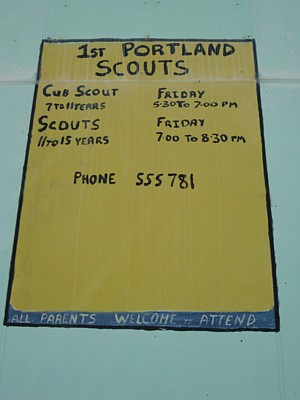 1ST PORTLAND
SCOUTS
CUB SCOUT FRIDAY
7 TO 11 YEARS 5·30 TO 7·00 PM
SCOUTS FRIDAY
11 TO 15 YEARS 7·00 TO 8·30 PM
PHONE 555781
ALL PARENTS WELCOME TO ATTEND